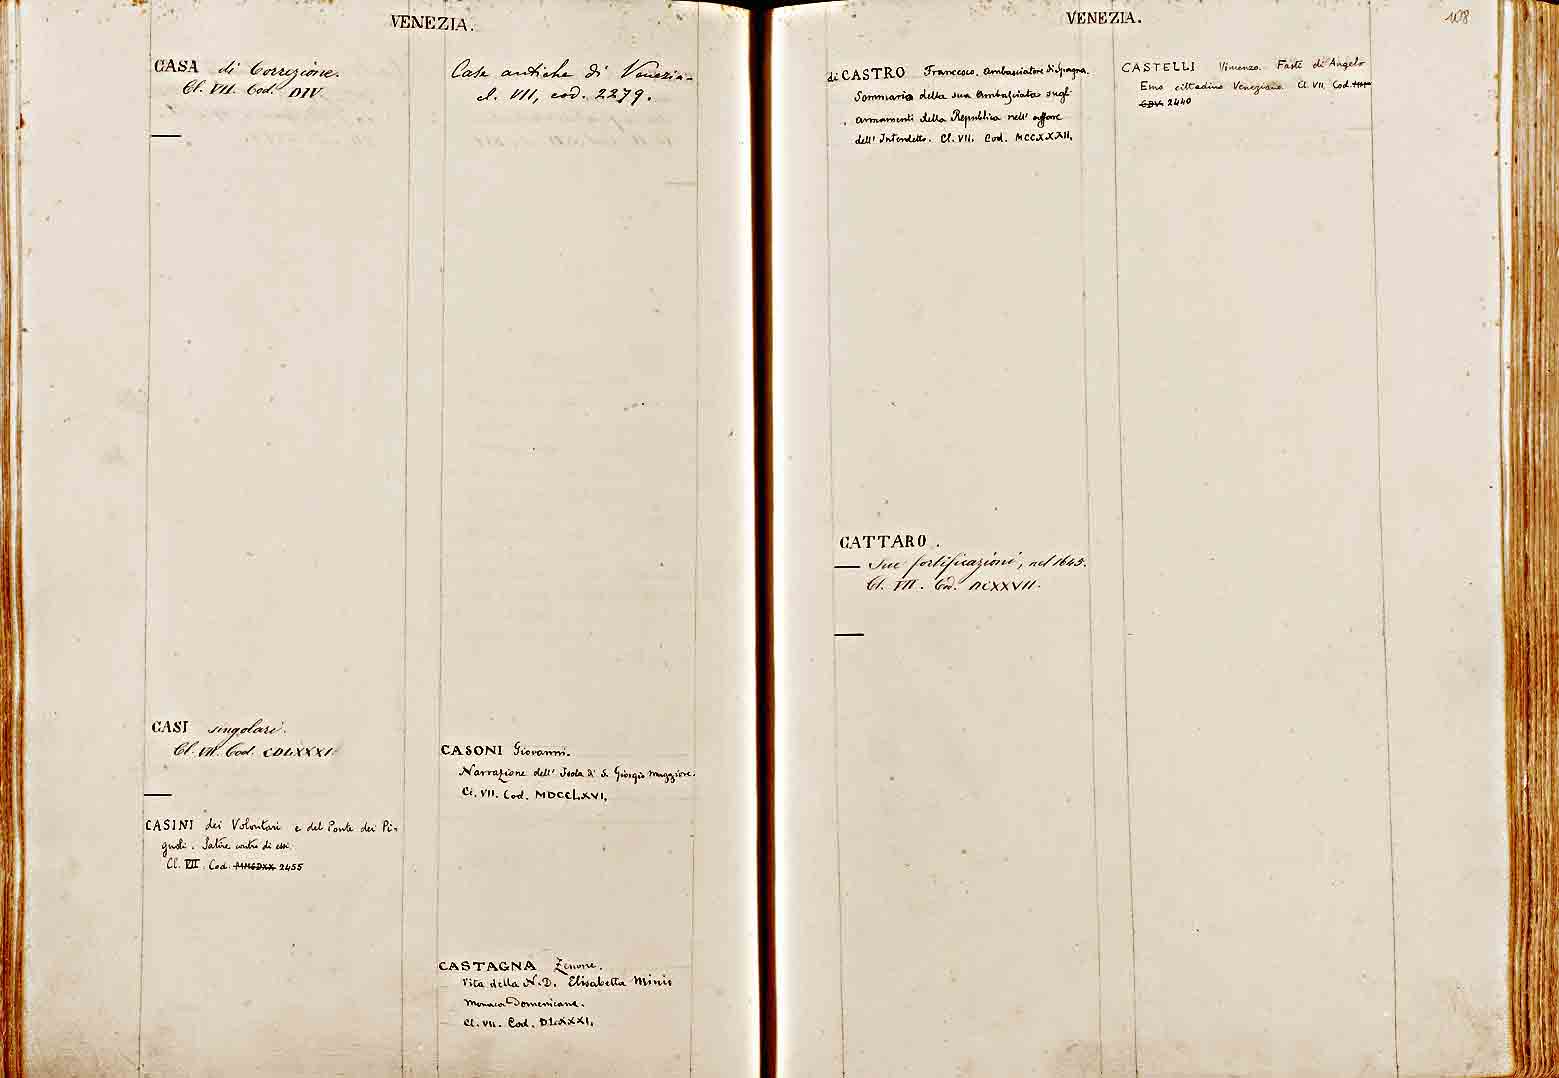 VENEZIA.
CASA di Correzione.
Cl. VII. Cod. DIV.
CASI singolari.
Cl. VII. Cod. CDLXXXI.
CASINI dei Volontari e del Ponte dei Pi-
gnoli. Satire contro di essi.
Cl. VII. Cod. 2455
Case antiche di Venezia -
cl. VII, cod. 2279.
CASONI Giovanni.
Narrazione dell' Isola di S. Giorgio Maggiore.
Cl. VII. Cod. MDCCLXVI.
CASTAGNA Zenone.
Vita della N. D. Elisabetta Minis
Monaca Domenicana.
Cl. VII. Cod. DLXXXI.
VENEZIA.
108
di CASTRO Francesco. Ambasciatore di Spagna.
Sommario della sua Ambasciata sugl'
armamenti della Repubblica nell' affare
dell' Interdetto. Cl. VII. Cod. MCCXXXII.
CATTARO.
— Sue fortificazioni, nel 1643.
Cl. VII. Cod. DCXXVII.
CASTELLI Vincenzo. Fasti di Angelo
Emo cittadino Veneziano Cl. VII. Cod.
2440